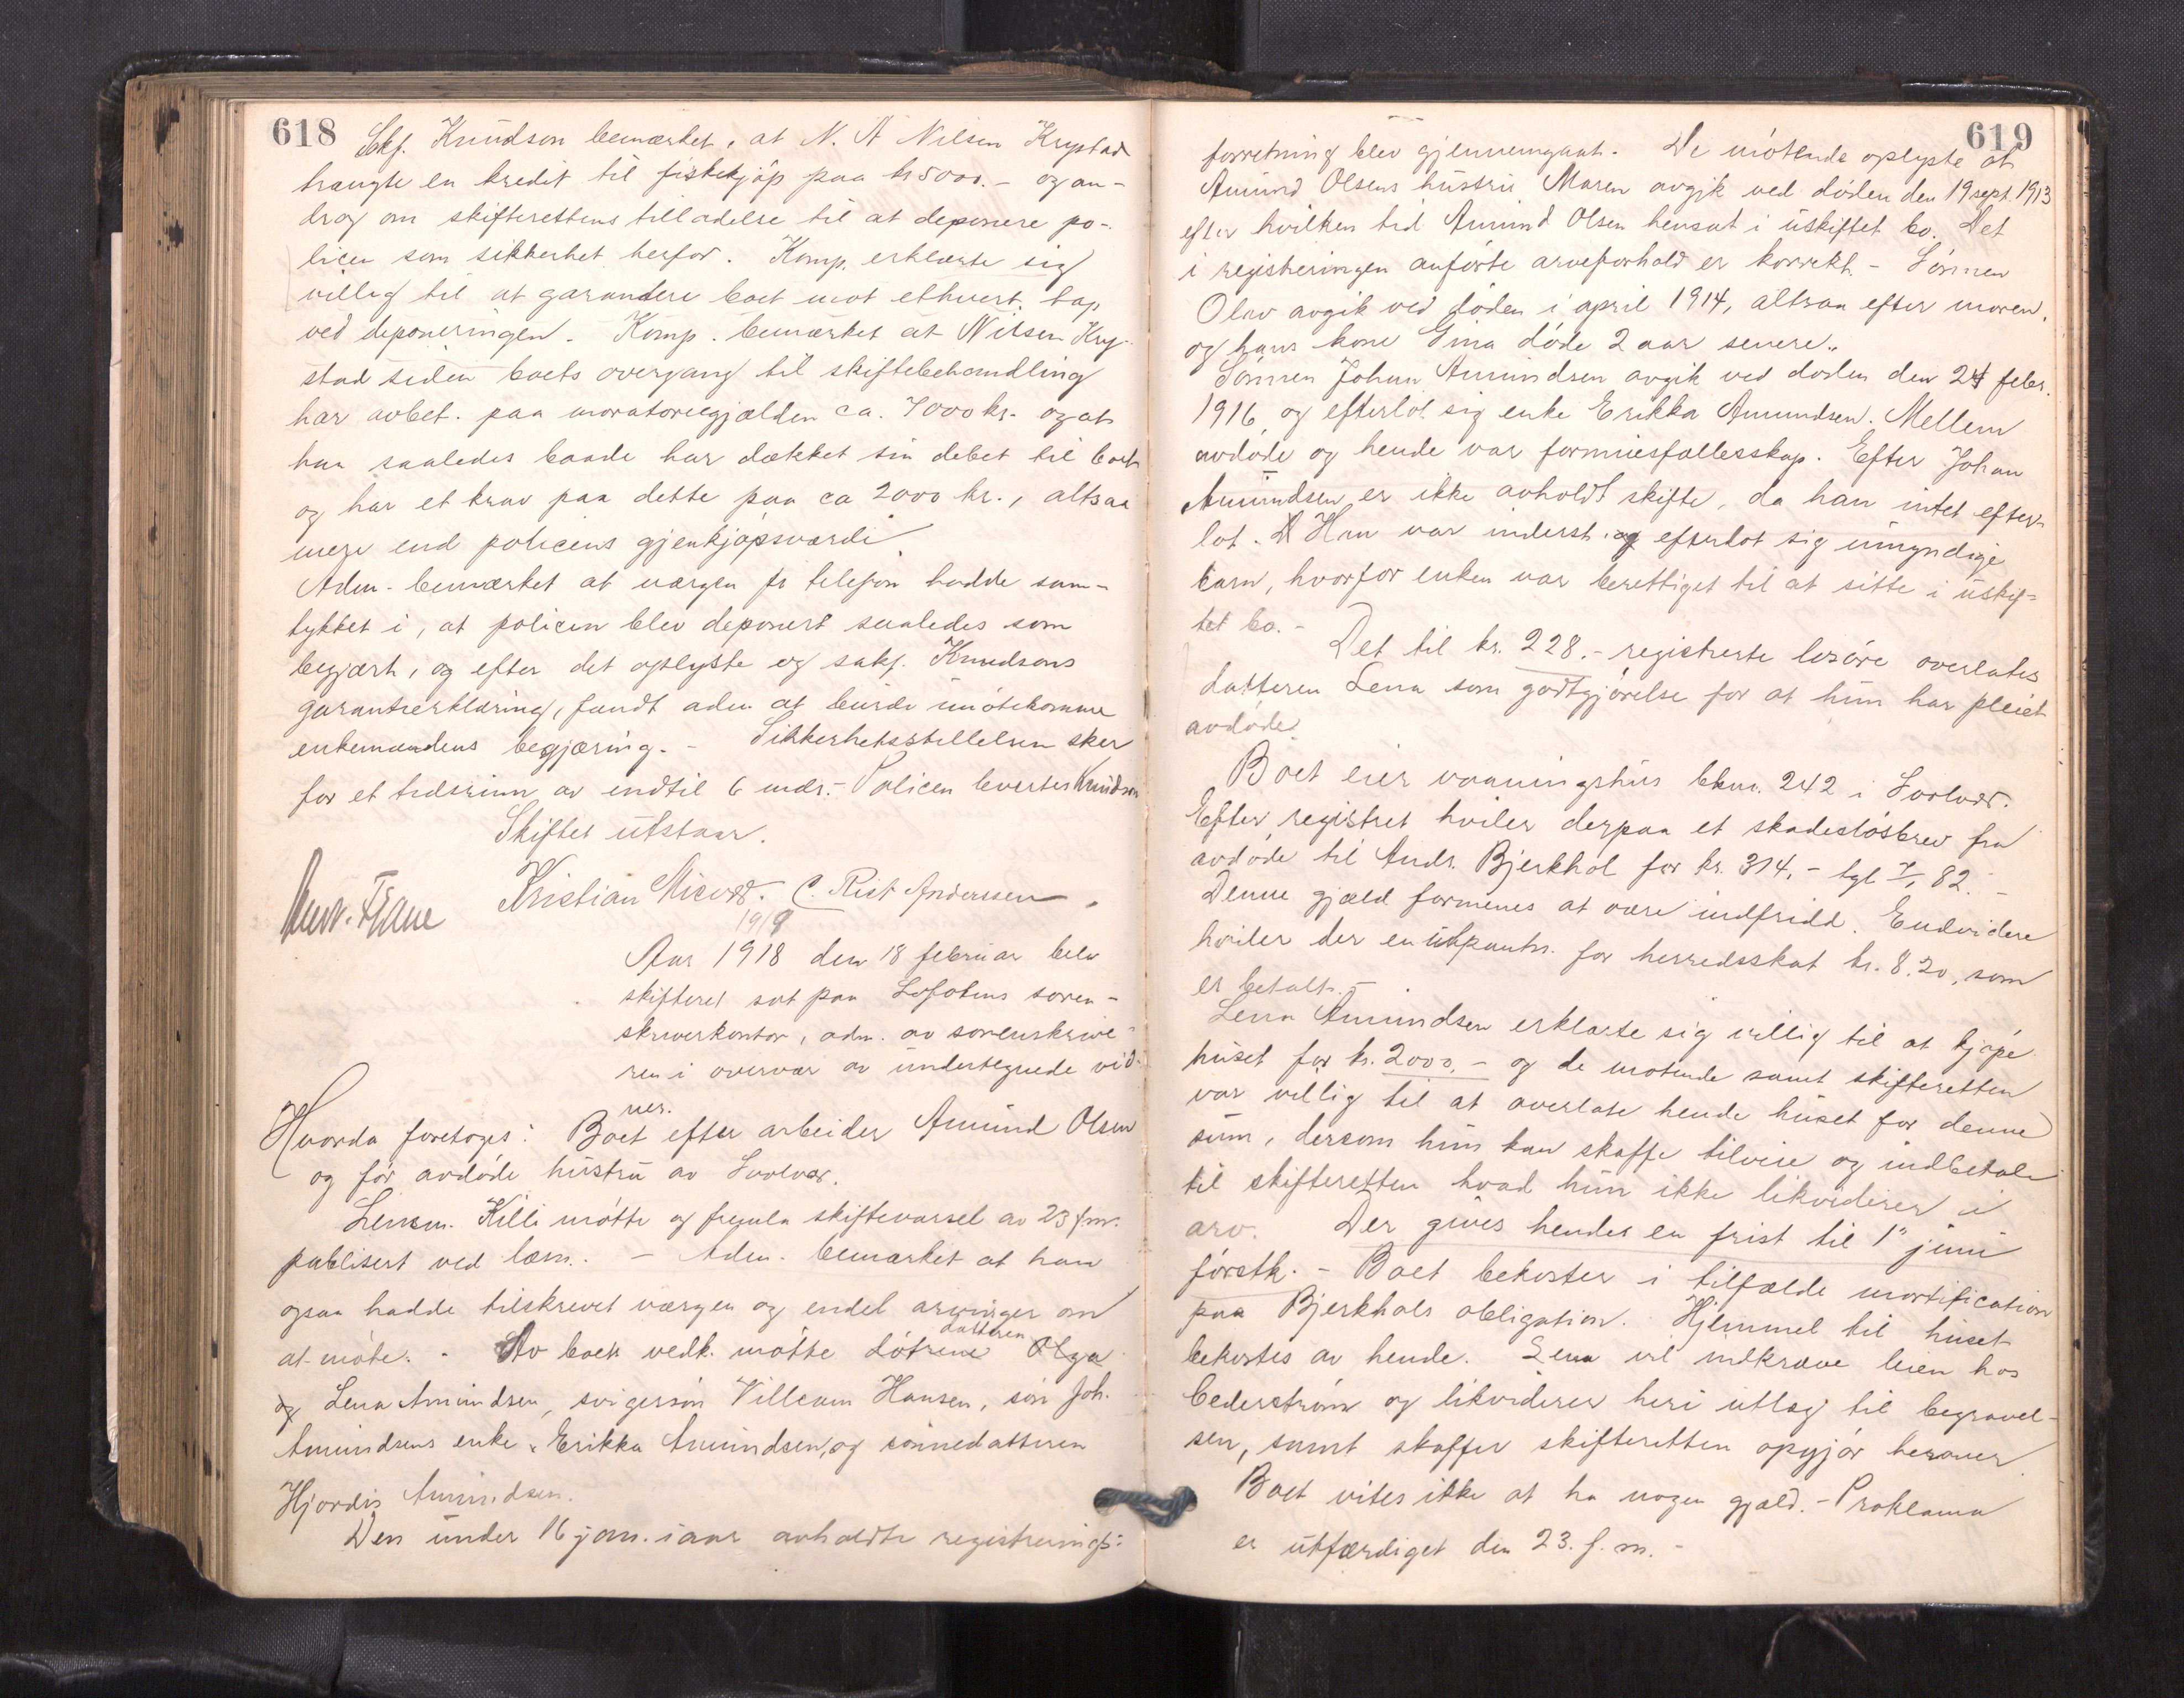 618
Sakf. Knudson bemærket, at N. A Nilsen Krystad
trængte en kredit til fiskekjøp paa kr 5000.- og an-
drog om skifterettens tilladelse til at deponere po-
licen som sikkerhet herfor. Komp. erklærte sig
villig til at garandere boet mot ethvert tap
ved deponeringen. Komp. bemærket at Nilsen Kry-
stad siden boets overgang til skiftebehandling
har avbet. paa moratoriegjælden ca. 7000 kr. og at
han saaledes baade har dækket sin debet til boet
og har et krav paa dette paa ca 2000 kr., altsaa
mere end policens gjenkjøpsværdi.
Adm. bemærket at værgen pr telefon hadde sam-
tykket i, at policen blev deponert saaledes som
begjært, og efter det oplyste og sakf. Knudsons
garantierklæring, fandt adm at burde imøtekomme
enkemandens begjæring. - Sikkerhetsstillelsen sker
for et tidsrum av indtil 6 mdr. - Policen levertes Knudson
Skiftet utstaar.
Kristian C. Rist Anderssen.
1919
Aar 1918 den 18 februar blev
skifteret sat paa Lofotens soren-
skriverkontor, adm. av sorenskrive-
ren i overvær av undertegnede vid-
ner.
Hvorda foretoges: Boet efter arbeider Amund Olsen
og før avdøde hustru av Svolvær.
Lensm. Killi møtte og fremla skiftevarsel av 23 f.m.
publisert ved læsn. - Adm. bemærket at han
ogsaa hadde tilskrevet værgen og endel arvinger om
at møte. - Av boets vedk. møtte døtrene datteren Olga
og Lena Amundsen, svigersøn Villeam Hansen, søn Joh.
Amundsens enke Erikka Amundsen, og sønnedatteren
Hjordis Amundsen.
Den under 16 jan. i aar avholdte registrerings-
619
forretning blev gjennemgaat. De møtende oplyste at
Amund Olsens hustru Maren avgik ved døden den 19 sept. 1913
efter hvilken tid Amund Olsen hensat i uskiftet bo. Det
i registreringen anførte arveforhold er korrekt. - Sønnen
Olav avgik ved døden i april 1914, altsaa efter moren,
og hans kone Gina døde 2 aar senere.
Sønnen Johan Amundsen avgik ved døden den 24 febr.
1916 og efterlot sig enke Erikka Amundsen. Mellem
avdøde og hende var formuesfællesskap. Efter Johan
Amundsen er ikke avholdt skifte, da han intet efter-
lot. Han var inderst og efterlot sig umyndige
barn, hvorfor enken var berettiget til at sitte i uskif-
tet bo. -
Det til kr. 228.- registrerte løsøre overlates
datteren Lena som godtgjørelse for at hun har pleiet
avdøde.
Boet eier vaaningshus bknr. 242 i Svolvær.
Efter registret hviler derpaa et skadesløsbrev fra
avdøde til Andr. Bjerkhol for kr. 314,- tgl 7/1 82. -
Denne gjæld formenes at være indfridd. Endvidere
hviler der en utpantn. for herredsskat kr. 8.20, som
er betalt. -
Lena Amundsen erklærte sig villig til at kjøpe
huset for kr. 2000.- og de møtende samt skifteretten
var villig til at overlate hende huset for denne
sum, dersom hun kan skaffe tilveie og indbetale
til skifteretten hvad hun ikke likviderer i
arv. Der gives hende en frist til 1. juni
førstk. - Boet bekoster i tilfælde mortification
paa Bjerkhols obligation. Hjemmel til huset
bekostes av hende. Lena vil indkræve leien hos
Cederstrøm og likviderer heri utlæg til begravel-
sen, samt skaffer skifteretten opgjør herover.
Boet vites ikke at ha nogen gjæld. - Proklama
er utfærdiget den 23. f. m. -